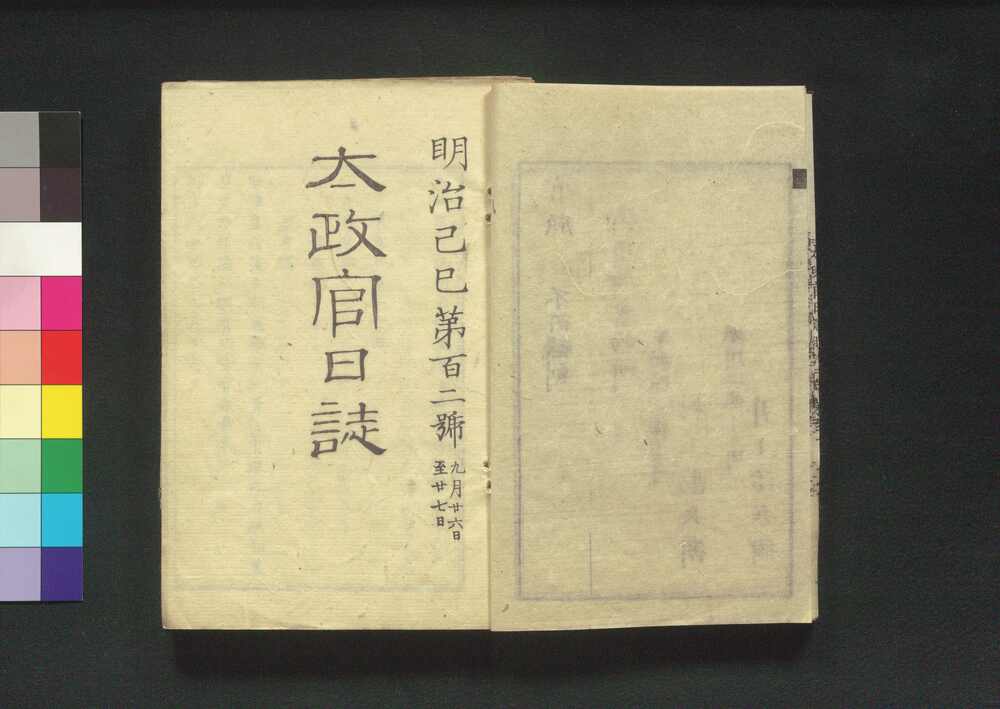 明治己巳第百二號
九月廿六日
至廿七日
太政官日誌